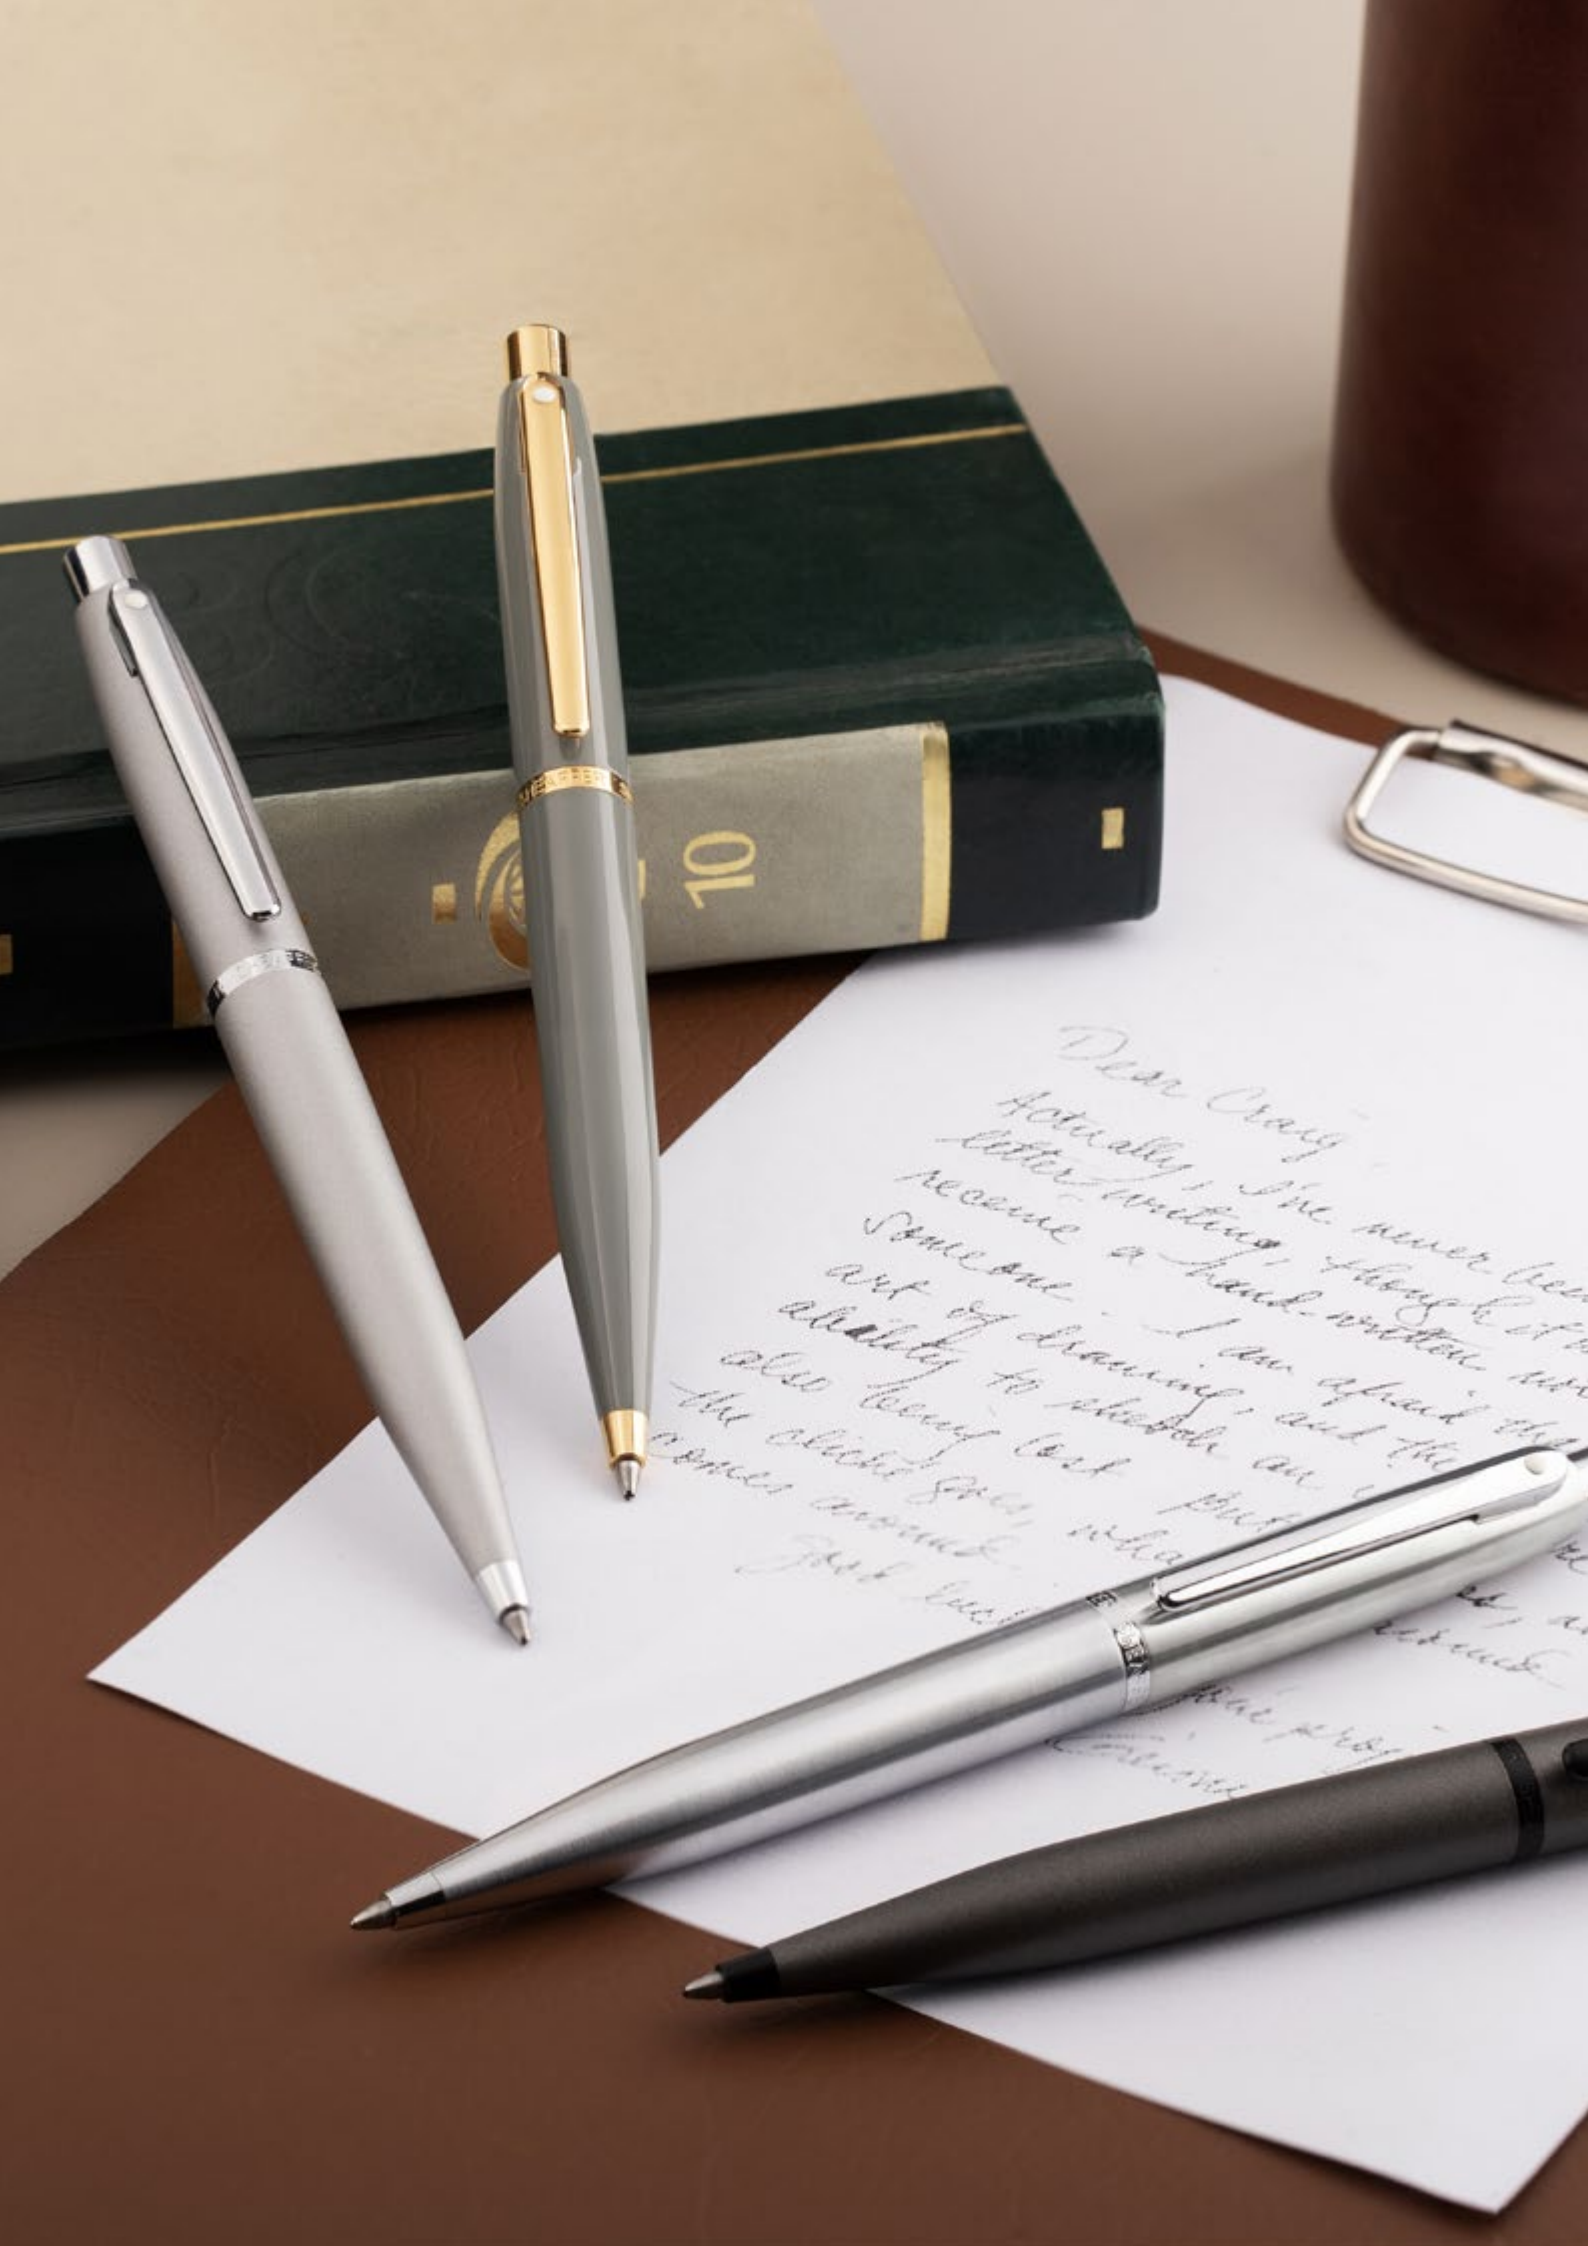 SHEAFFER
10
Dear Craig,
Actually, I've never been
letter-writing, though it
receive a hand-written
someone. I am afraid
art of drawing, and the
ability to sketch an
also being lost put
the cliche goes, wha
comes around.
Good luc
your proj